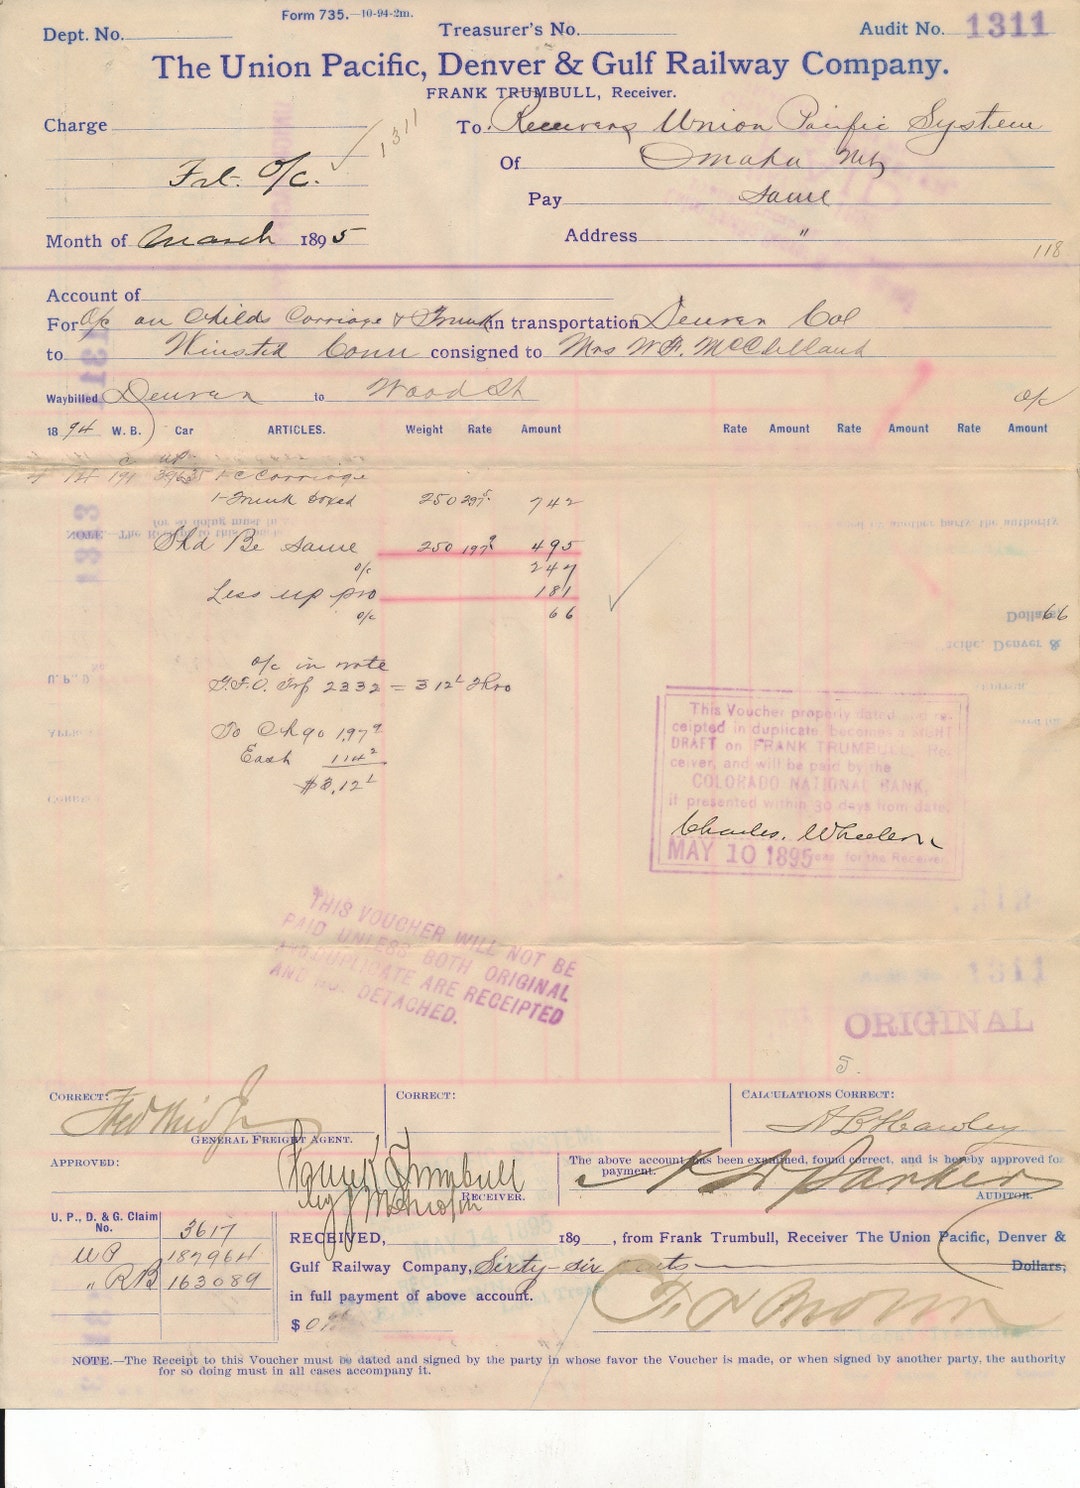 Form 735.—10-94-2m.
Dept. No. Treasurer's No. Audit No. 1311
The Union Pacific, Denver & Gulf Railway Company.
FRANK TRUMBULL, Receiver.
Charge 1311 To Receivers Union Pacific System
Frt. O/C. Of Omaha Neb
Pay Same
Month of March 1895 Address "
118
Account of
For O/c on Childs Carriage & Trunk in transportation Denver Col
to Winsted Conn consigned to Mrs W. F. McClelland
Waybilled Denver to Wood St O/c
1894 W. B. Car ARTICLES. Weight Rate Amount Rate Amount Rate Amount Rate Amount
4 14 191 39635 1 C Carriage
1 Trunk boxed 250 297 742
Shd Be same 250 197 495
o/c 247
Less up pro 181
o/c 66
Dollars 66
o/c in rate
Trf 2332 = 312 Thro
This Voucher properly dated and re-
ceipted in duplicate, becomes a SIGHT
DRAFT on FRANK TRUMBULL, Re-
ceiver, and will be paid by the
COLORADO NATIONAL BANK,
if presented within 30 days from date.
Charles Wheeler
MAY 10 1895 for the Receiver
To Chgo 1.97
East 114
$3.12
THIS VOUCHER WILL NOT BE
PAID UNLESS BOTH ORIGINAL
AND DUPLICATE ARE RECEIPTED
AND NOT DETACHED.
1311
ORIGINAL
5.
CORRECT: CORRECT: CALCULATIONS CORRECT:
Fred Wild Jr A B Hawley
GENERAL FREIGHT AGENT.
APPROVED: Frank Trumbull The above account has been examined, found correct, and is hereby approved for
payment.
by RECEIVER. Parker AUDITOR.
U. P., D. & G. Claim No. 3617
UP 187964
" RB 163089
RECEIVED, 189 , from Frank Trumbull, Receiver The Union Pacific, Denver &
MAY 14 1895
Gulf Railway Company, Sixty-six cents Dollars,
in full payment of above account.
$ 0
NOTE.—The Receipt to this Voucher must be dated and signed by the party in whose favor the Voucher is made, or when signed by another party, the authority
for so doing must in all cases accompany it.